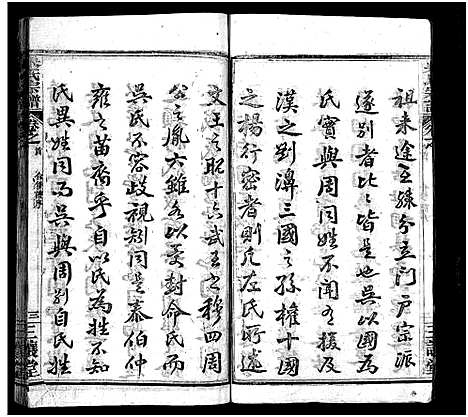 祖来途立孫分立门户宗派
遂别者比比皆是也吴以國为
氏實與周同姓不闻又復及
漢之劉濞三國之孫權十國
之楊行密者則凡左氏所述
文王之昭十六武王之穆四周
公之胤六雖各以受封命氏而
吴氏不容歧视矧同是泰伯仲
雍之苗裔乎自以氏為姓不知
氏異姓同而吴與周别自氏姓
吴氏宗譜
卷之首
三讓堂